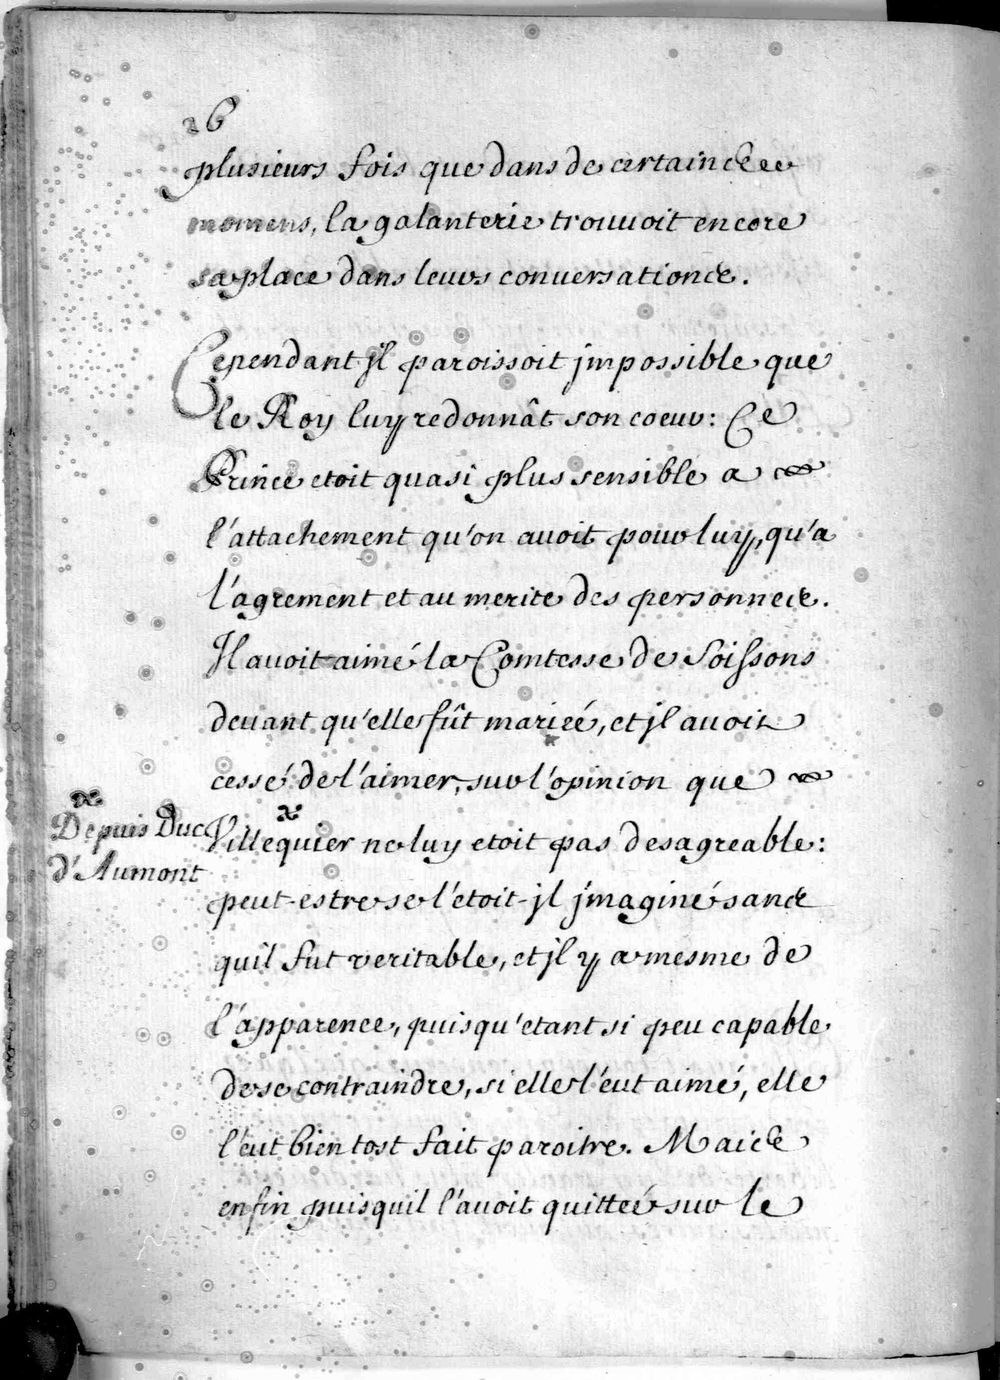 26
plusieurs fois que dans de certains
momens, la galanterie trouuoit encore
sa place dans leurs conuersations.
Cependant jl paroissoit jmpossible que
le Roy luy redonnât son coeur: Ce
Prince etoit quasi plus sensible a
l'attachement qu'on auoit pour luy, qu'a
l'agrement et au merite des personnes.
Jl auoit aimé la Comtesse de Soissons
deuant qu'elle fût marieé, et jl auoit
cessé de l'aimer, sur l'opinion que
Villequier ne luy etoit pas desagreable:
Depuis Duc
d'Aumont
peut-estre se l'étoit-jl jmaginé sans
quil fut veritable, et jl y a mesme de
l'apparence, puisqu'etant si peu capable
de se contraindre, si elle l'eut aimé, elle
l'eut bien tost fait paroitre. Mais
enfin puisquil l'auoit quitteé sur le